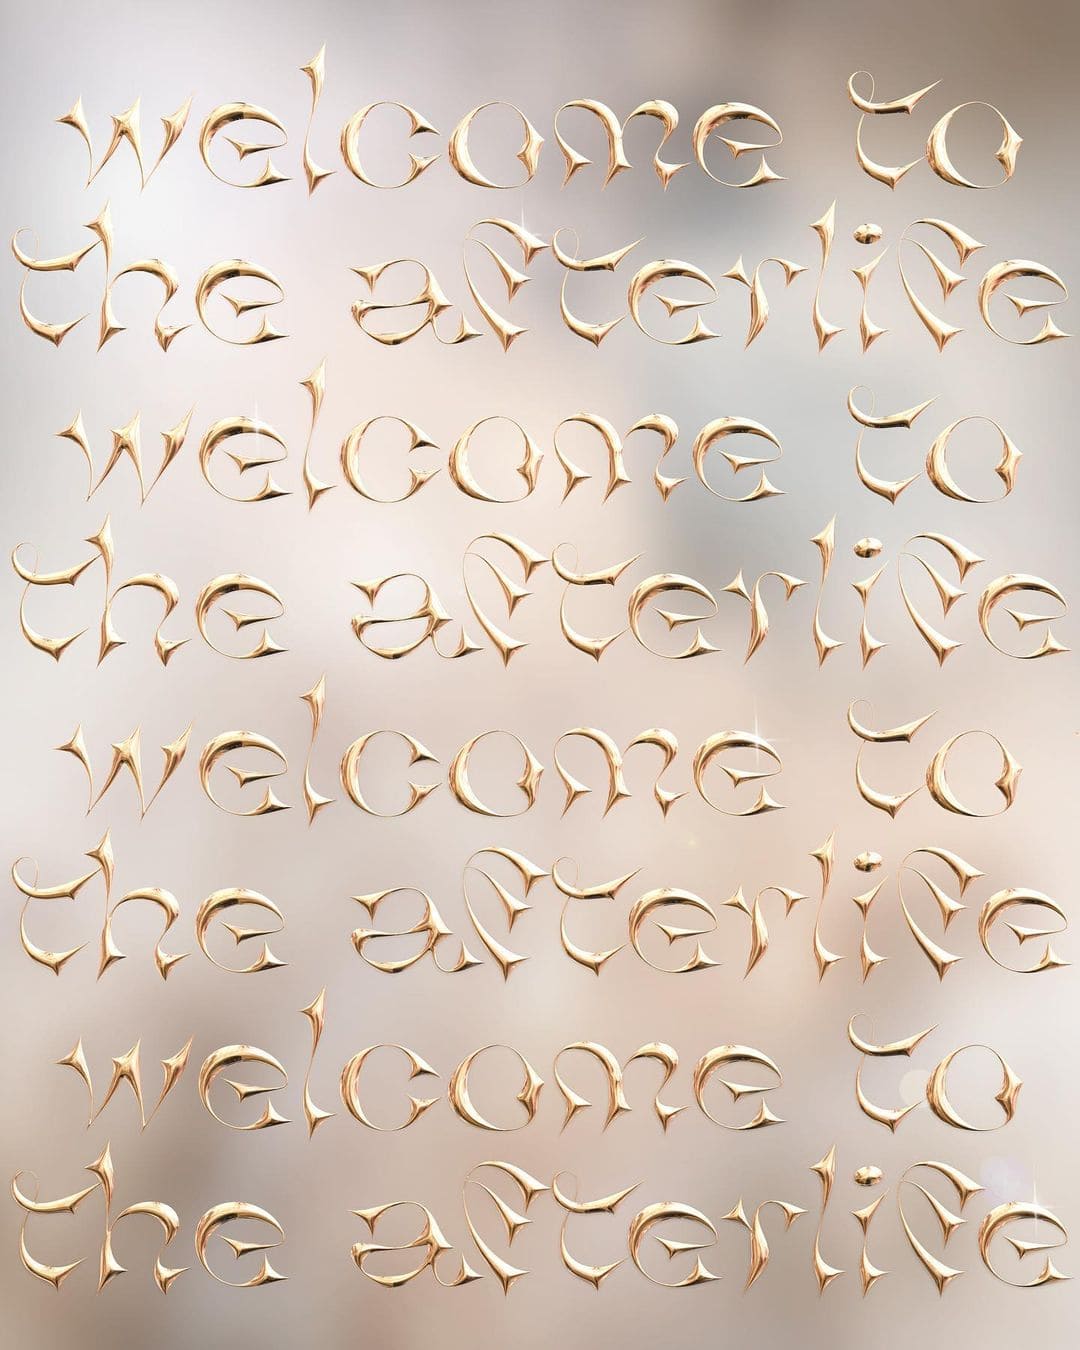 welcome to
the afterlife
welcome to
the afterlife
welcome to
the afterlife
welcome to
the afterlife